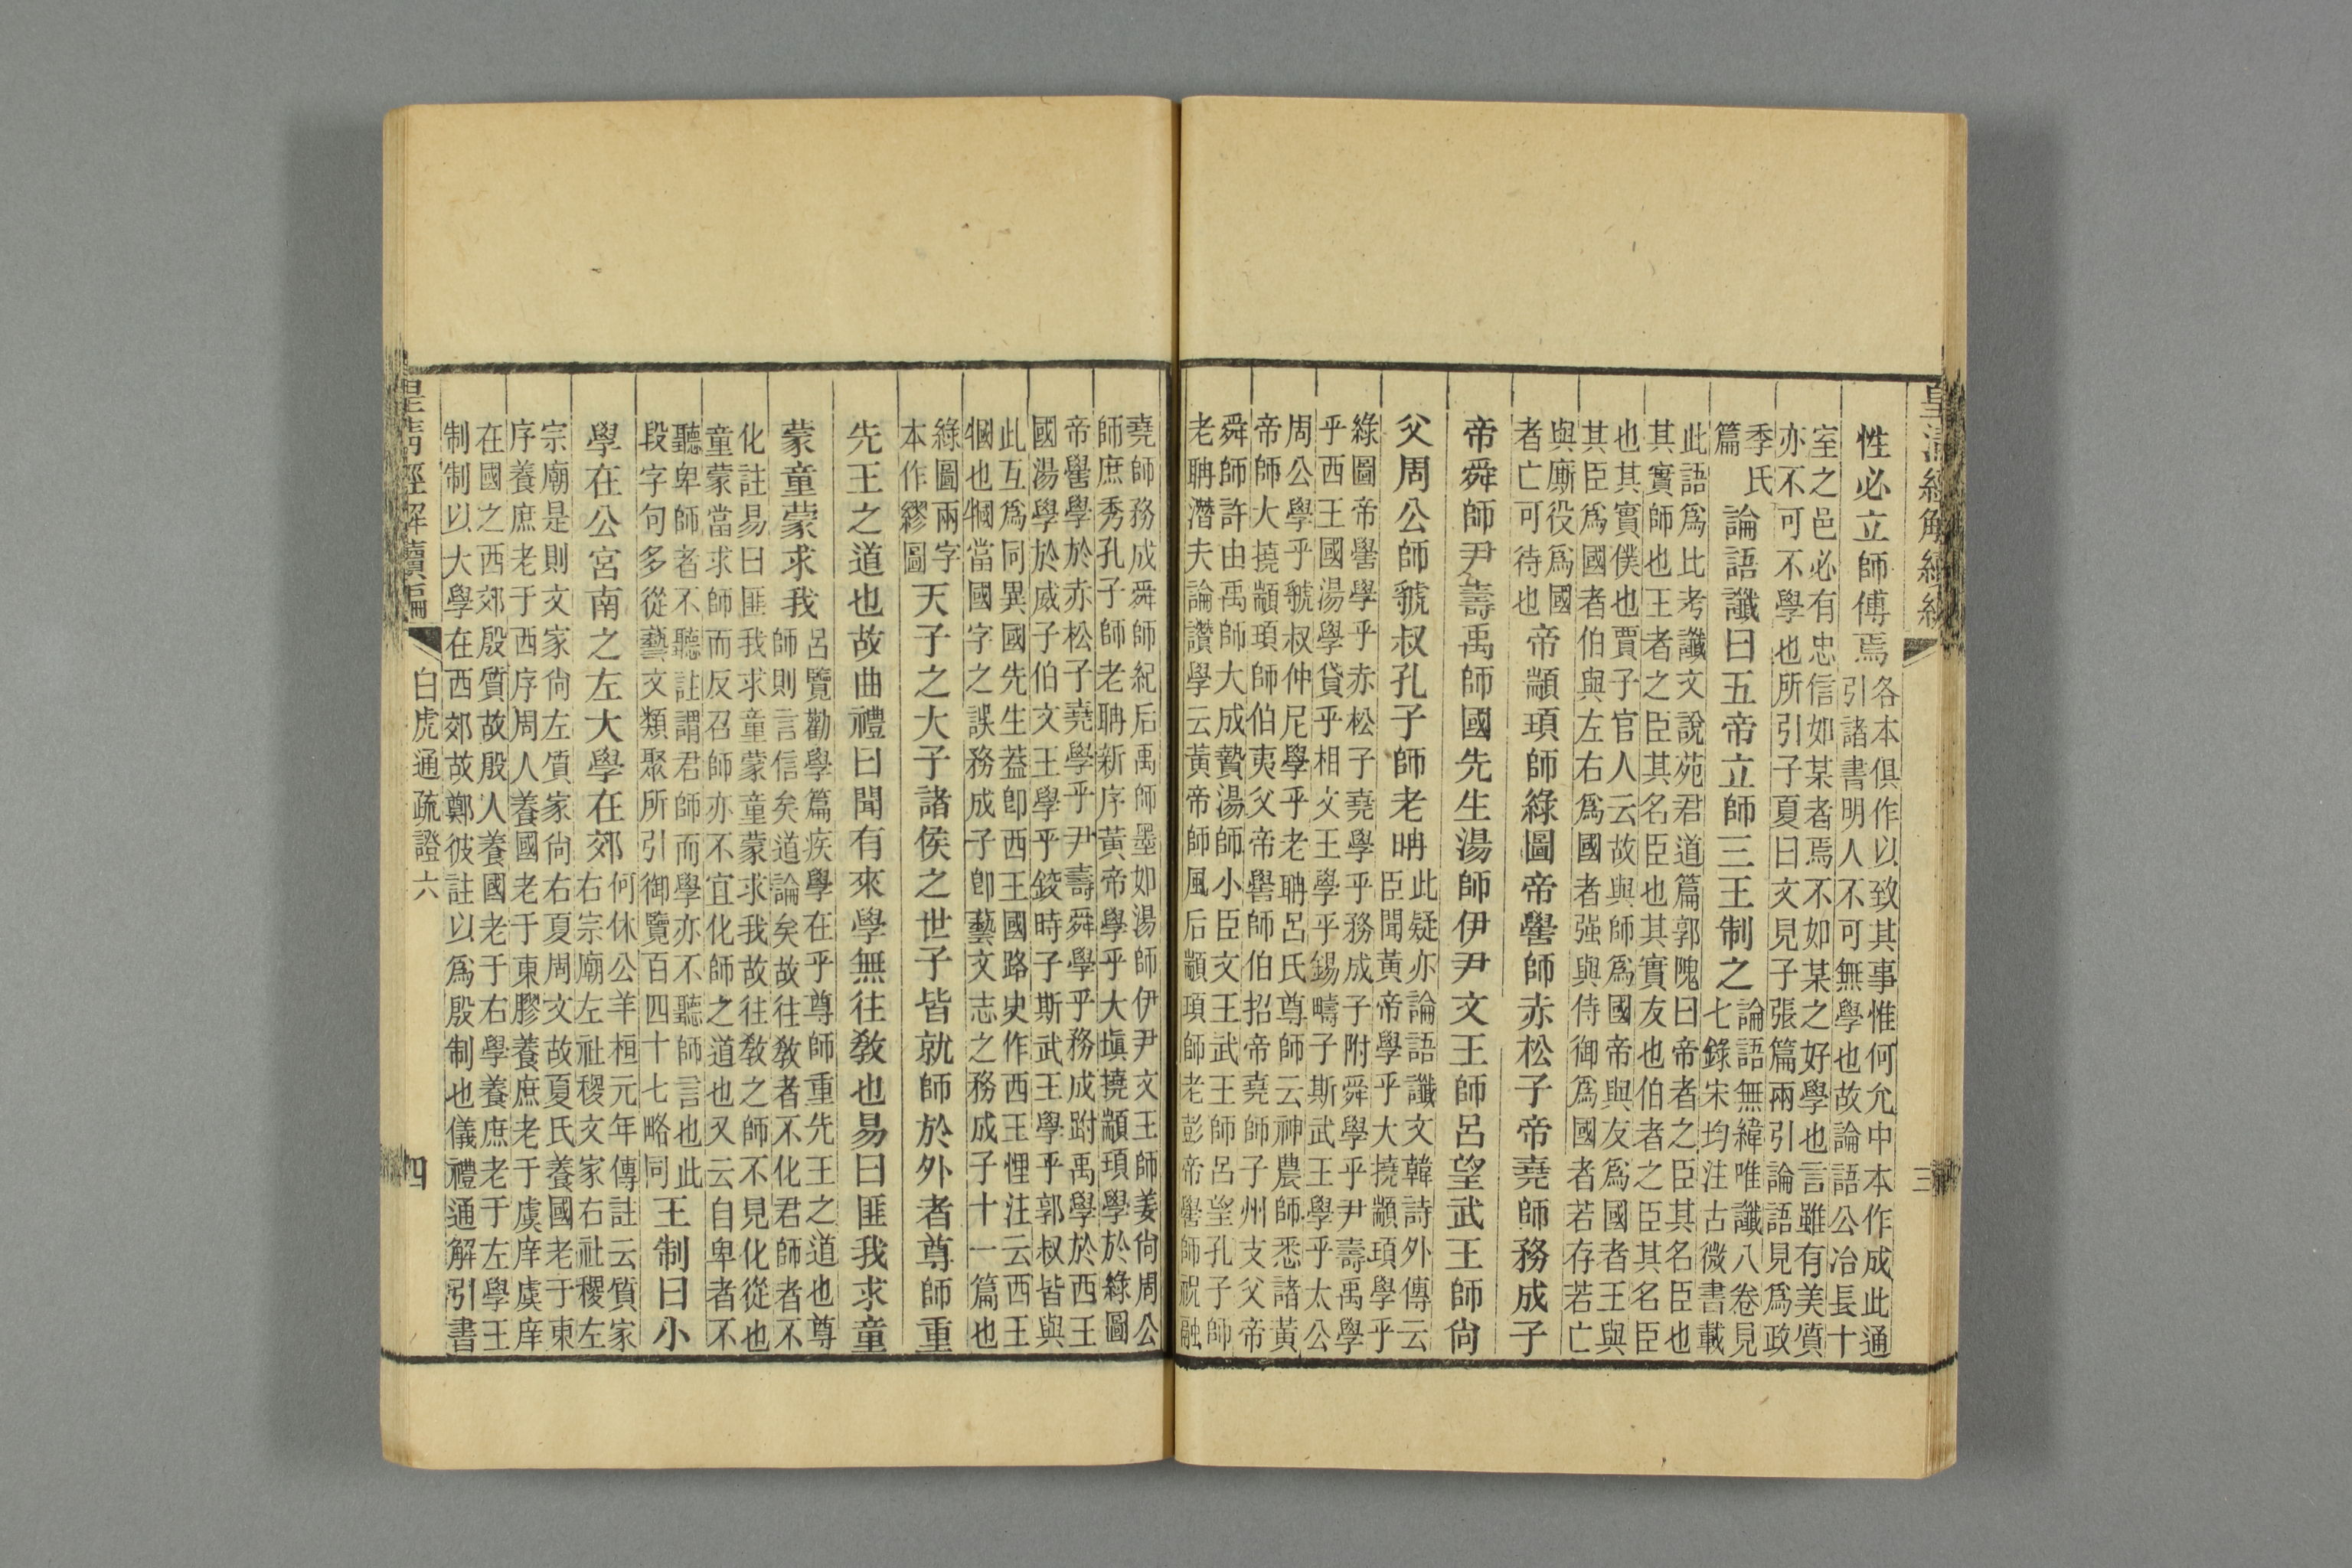 皇清經解續編
三
性必立師傅焉
各本俱作以致其事惟何允中本作成此通
引諸書明人不可無學也故論語公冶長十
室之邑必有忠信如某者焉不如某之好學也言雖有美質
亦不可不學也所引子夏曰文見子張篇兩引論語見爲政
季氏
篇
論語讖曰五帝立師三王制之
論語無緯唯讖八卷見
七錄宋均注古微書載
此語爲比考讖文說苑君道篇郭隗曰帝者之臣其名臣也
其實師也王者之臣其名臣也其實友也伯者之臣其名臣
也其實僕也賈子官人云故與師爲國帝與友爲國者王與
其臣爲國者伯與左右爲國者强與侍御爲國者若存若亡
與廝役爲國
者亡可待也
帝顓頊師綠圖帝嚳師赤松子帝堯師務成子
帝舜師尹壽禹師國先生湯師伊尹文王師呂望武王師尙
父周公師虢叔孔子師老聃
此疑亦論語讖文韓詩外傳云
臣聞黃帝學乎大撓顓頊學乎
綠圖帝嚳學乎赤松子堯學乎務成子附舜學乎尹壽禹學
乎西王國湯學貸乎相文王學乎錫疇子斯武王學乎太公
周公學乎虢叔仲尼學乎老聃呂氏尊師云神農師悉諸黃
帝師大撓顓頊師伯夷父帝嚳師伯招帝堯師子州支父帝
舜師許由禹師大成贄湯師小臣文王武王師呂望孔子師
老聃潛夫論讚學云黃帝師風后顓頊師老彭帝嚳師祝融
堯師務成舜師紀后禹師墨如湯師伊尹文王師姜尙周公
師庶秀孔子師老聃新序黃帝學乎大塡撓顓頊學於綠圖
帝嚳學於赤松子堯學乎尹壽舜學乎務成跗禹學於西王
國湯學於威子伯文王學乎鉸時子斯武王學乎郭叔皆與
此互爲同異國先生葢卽西王國路史作西王悝注云西王
㹙也㹙當國字之誤務成子卽藝文志之務成子十一篇也
綠圖兩字
本作繆圖
天子之大子諸侯之世子皆就師於外者尊師重
先王之道也故曲禮曰聞有來學無往敎也易曰匪我求童
蒙童蒙求我
呂覽勸學篇疾學在乎尊師重先王之道也尊
師則言信矣道論矣故往敎者不化君師者不
化註易曰匪我求童蒙童蒙求我故往敎之師不見化從也
童蒙當求師而反召師亦不宜化師之道也又云自卑者不
聽卑師者不聽註謂君師而學亦不聽師言也此
段字句多從藝文類聚所引御覽百四十七略同
王制曰小
學在公宮南之左大學在郊
何休公羊桓元年傳註云質家
右宗廟左社稷文家右社稷左
宗廟是則文家尙左質家尙右夏周文故夏氏養國老于東
序養庶老于西序周人養國老于東膠養庶老于虞庠虞庠
在國之西郊殷質故殷人養國老于右學養庶老于左學王
制制以大學在西郊故鄭彼註以爲殷制也儀禮通解引書
皇清經解續編
白虎通疏證六
四